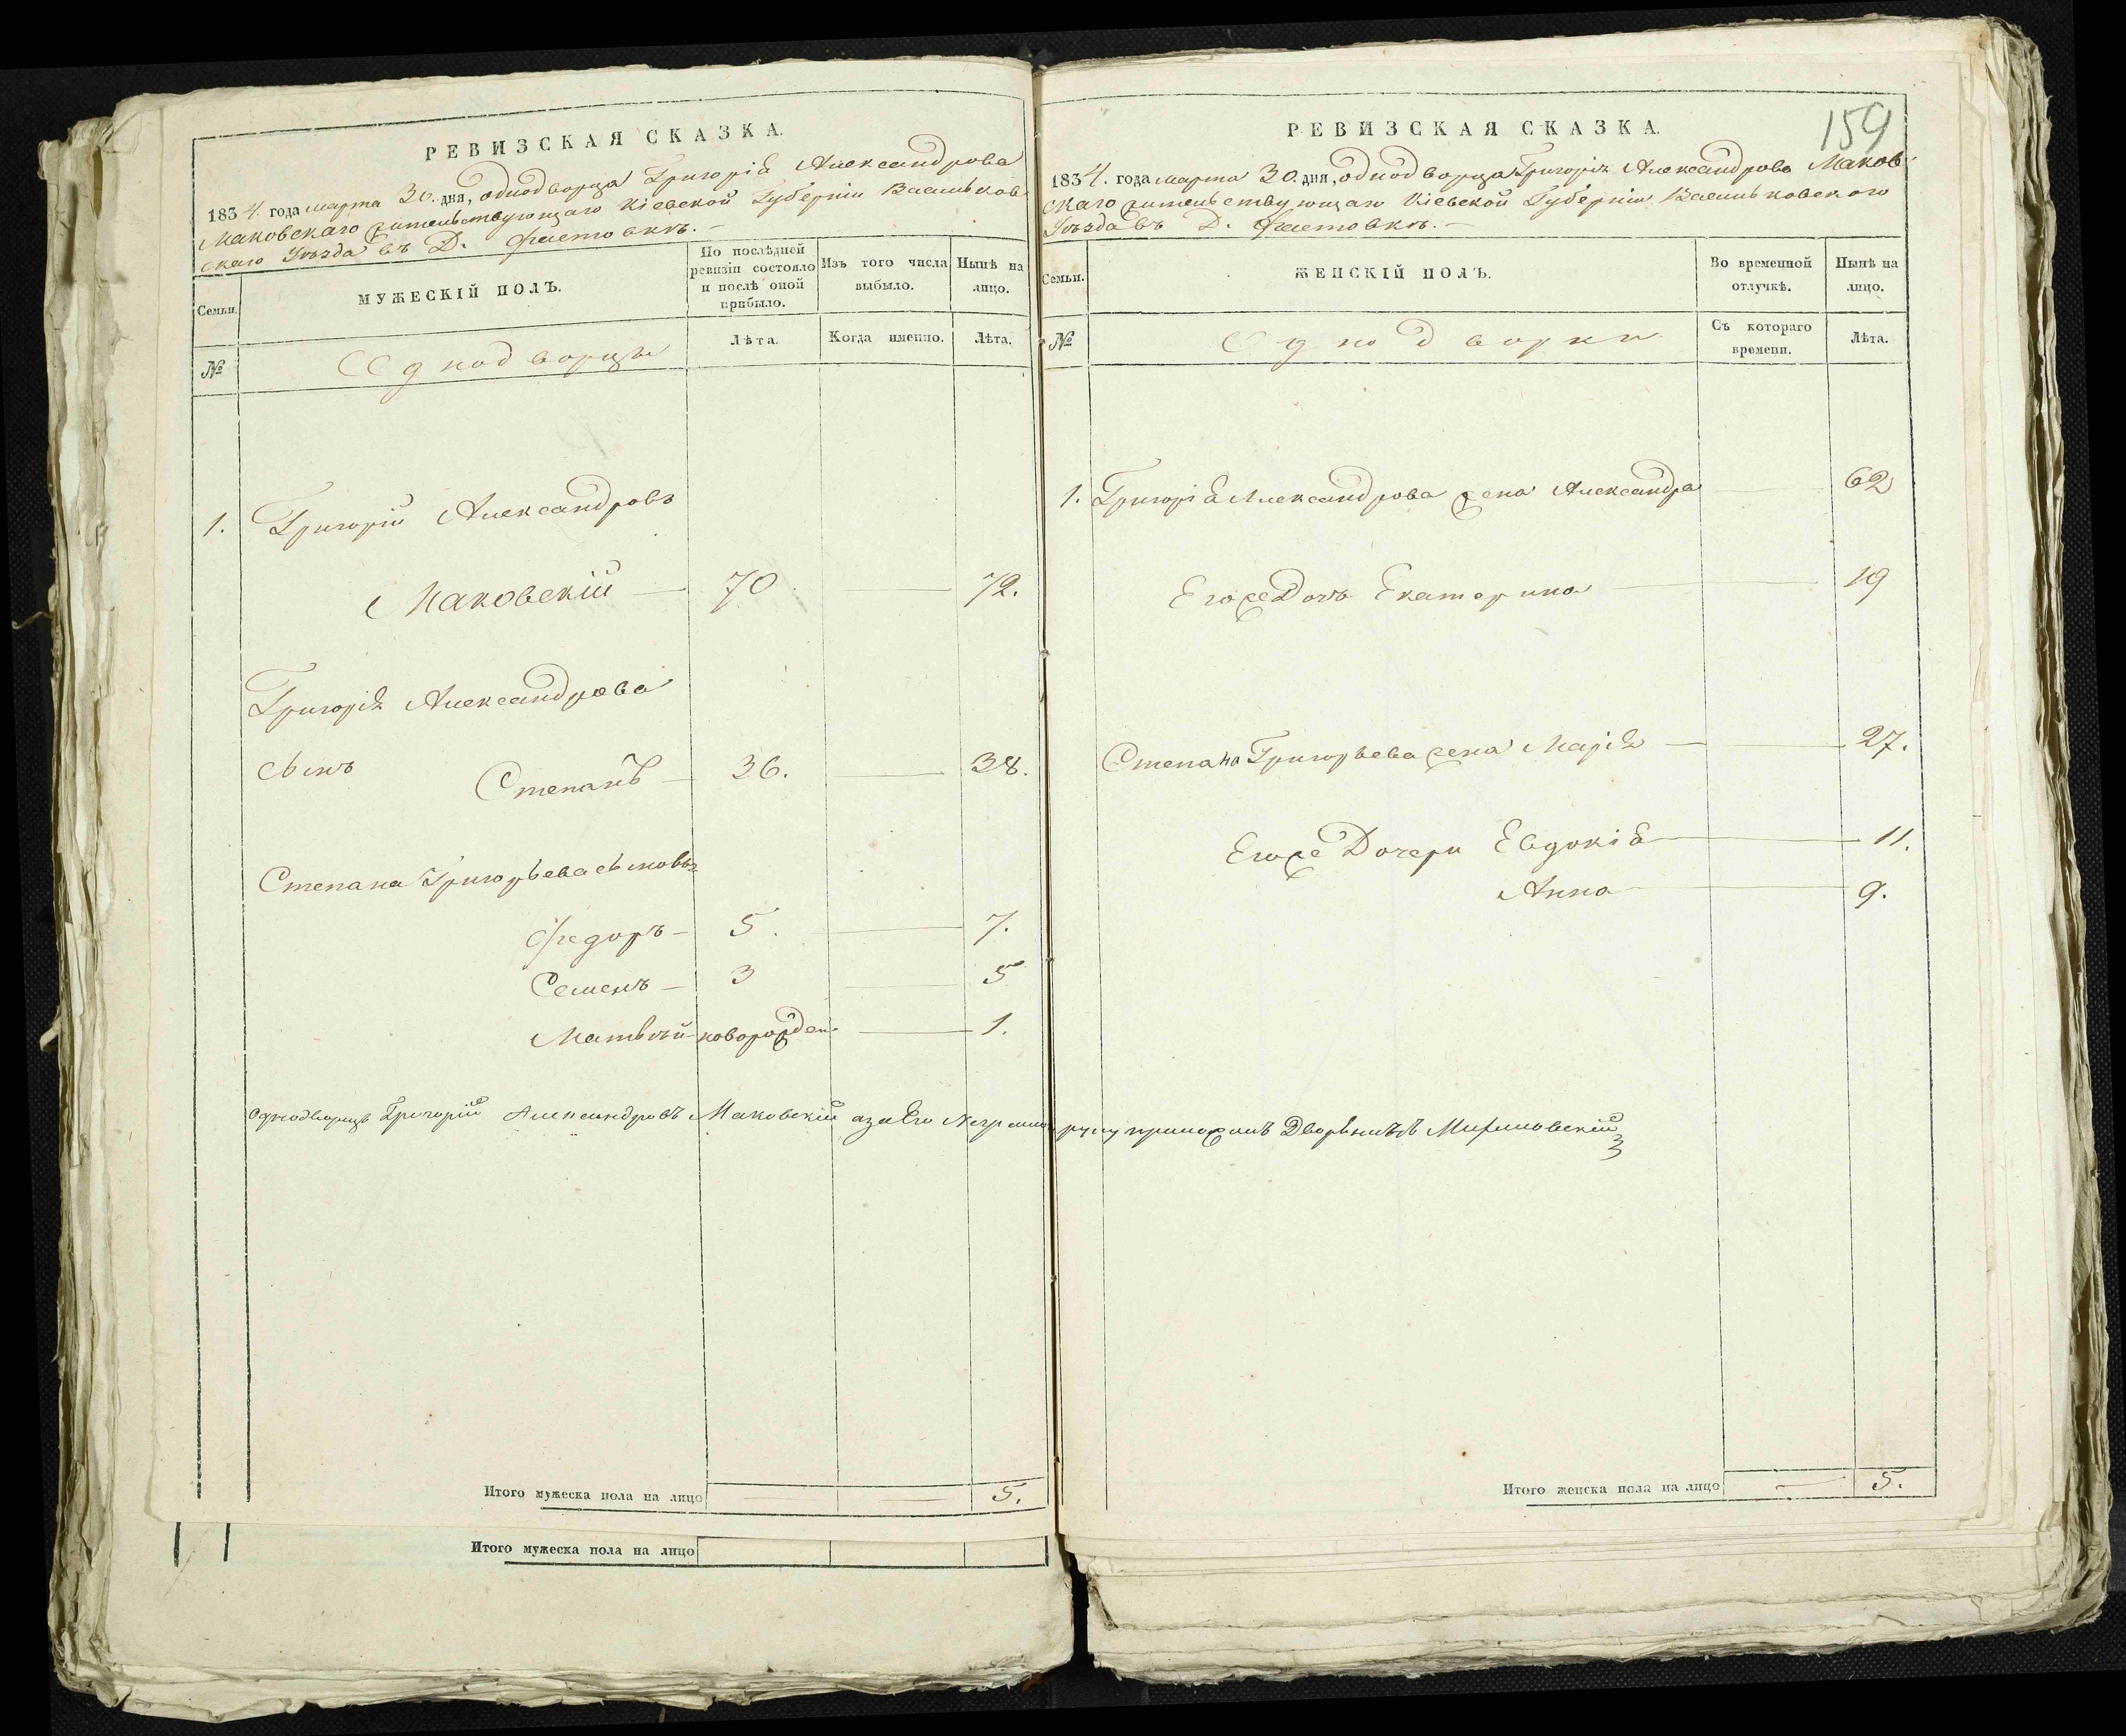 РЕВИЗСКАЯ СКАЗКА.
1834. года марта 30. дня, однодворца Григорія Александрова
Маковскаго жительствующаго Кіевской Губерніи Васильков
скаго Уѣзда въ Д. Фастовкѣ.
Семьи.
МУЖЕСКІЙ ПОЛЪ.
По послѣдней ревизіи состояло и послѣ оной прибыло.
Изъ того числа выбыло.
Нынѣ на лицо.
№
Однодворцы
Лѣта.
Когда именно.
Лѣта.
1. Григорій Александровъ
Маковскій — 70 — 72.
Григорія Александрова
сынъ Степанъ — 36. — 38.
Степана Григорьева сыновья
Федоръ — 5. — 7.
Семенъ — 3 — 5
Матвѣй — новорожден. — 1.
Однодворецъ Григорій Александровъ Маковскій а за Его
Итого мужеска пола на лицо — 5.
Итого мужеска пола на лицо
159
РЕВИЗСКАЯ СКАЗКА.
1834. года марта 30. дня, однодворца Григорія Александрова Маков
скаго жительствующаго Кіевской Губерніи Васильковскаго
Уѣзда въ Д. Фастовкѣ. —
Семьи.
ЖЕНСКІЙ ПОЛЪ.
Во временной отлучкѣ.
Нынѣ на лицо.
№
Однодворки
Съ котораго времени.
Лѣта.
1. Григорія Александрова жена Александра — 62
Егоже Дочь Екатерина — 19
Степана Григорьева жена Марія — 27.
Егоже Дочери Евдокія — 11.
Анна — 9.
руку приложилъ Дворянинъ
Итого женска пола на лицо — 5.